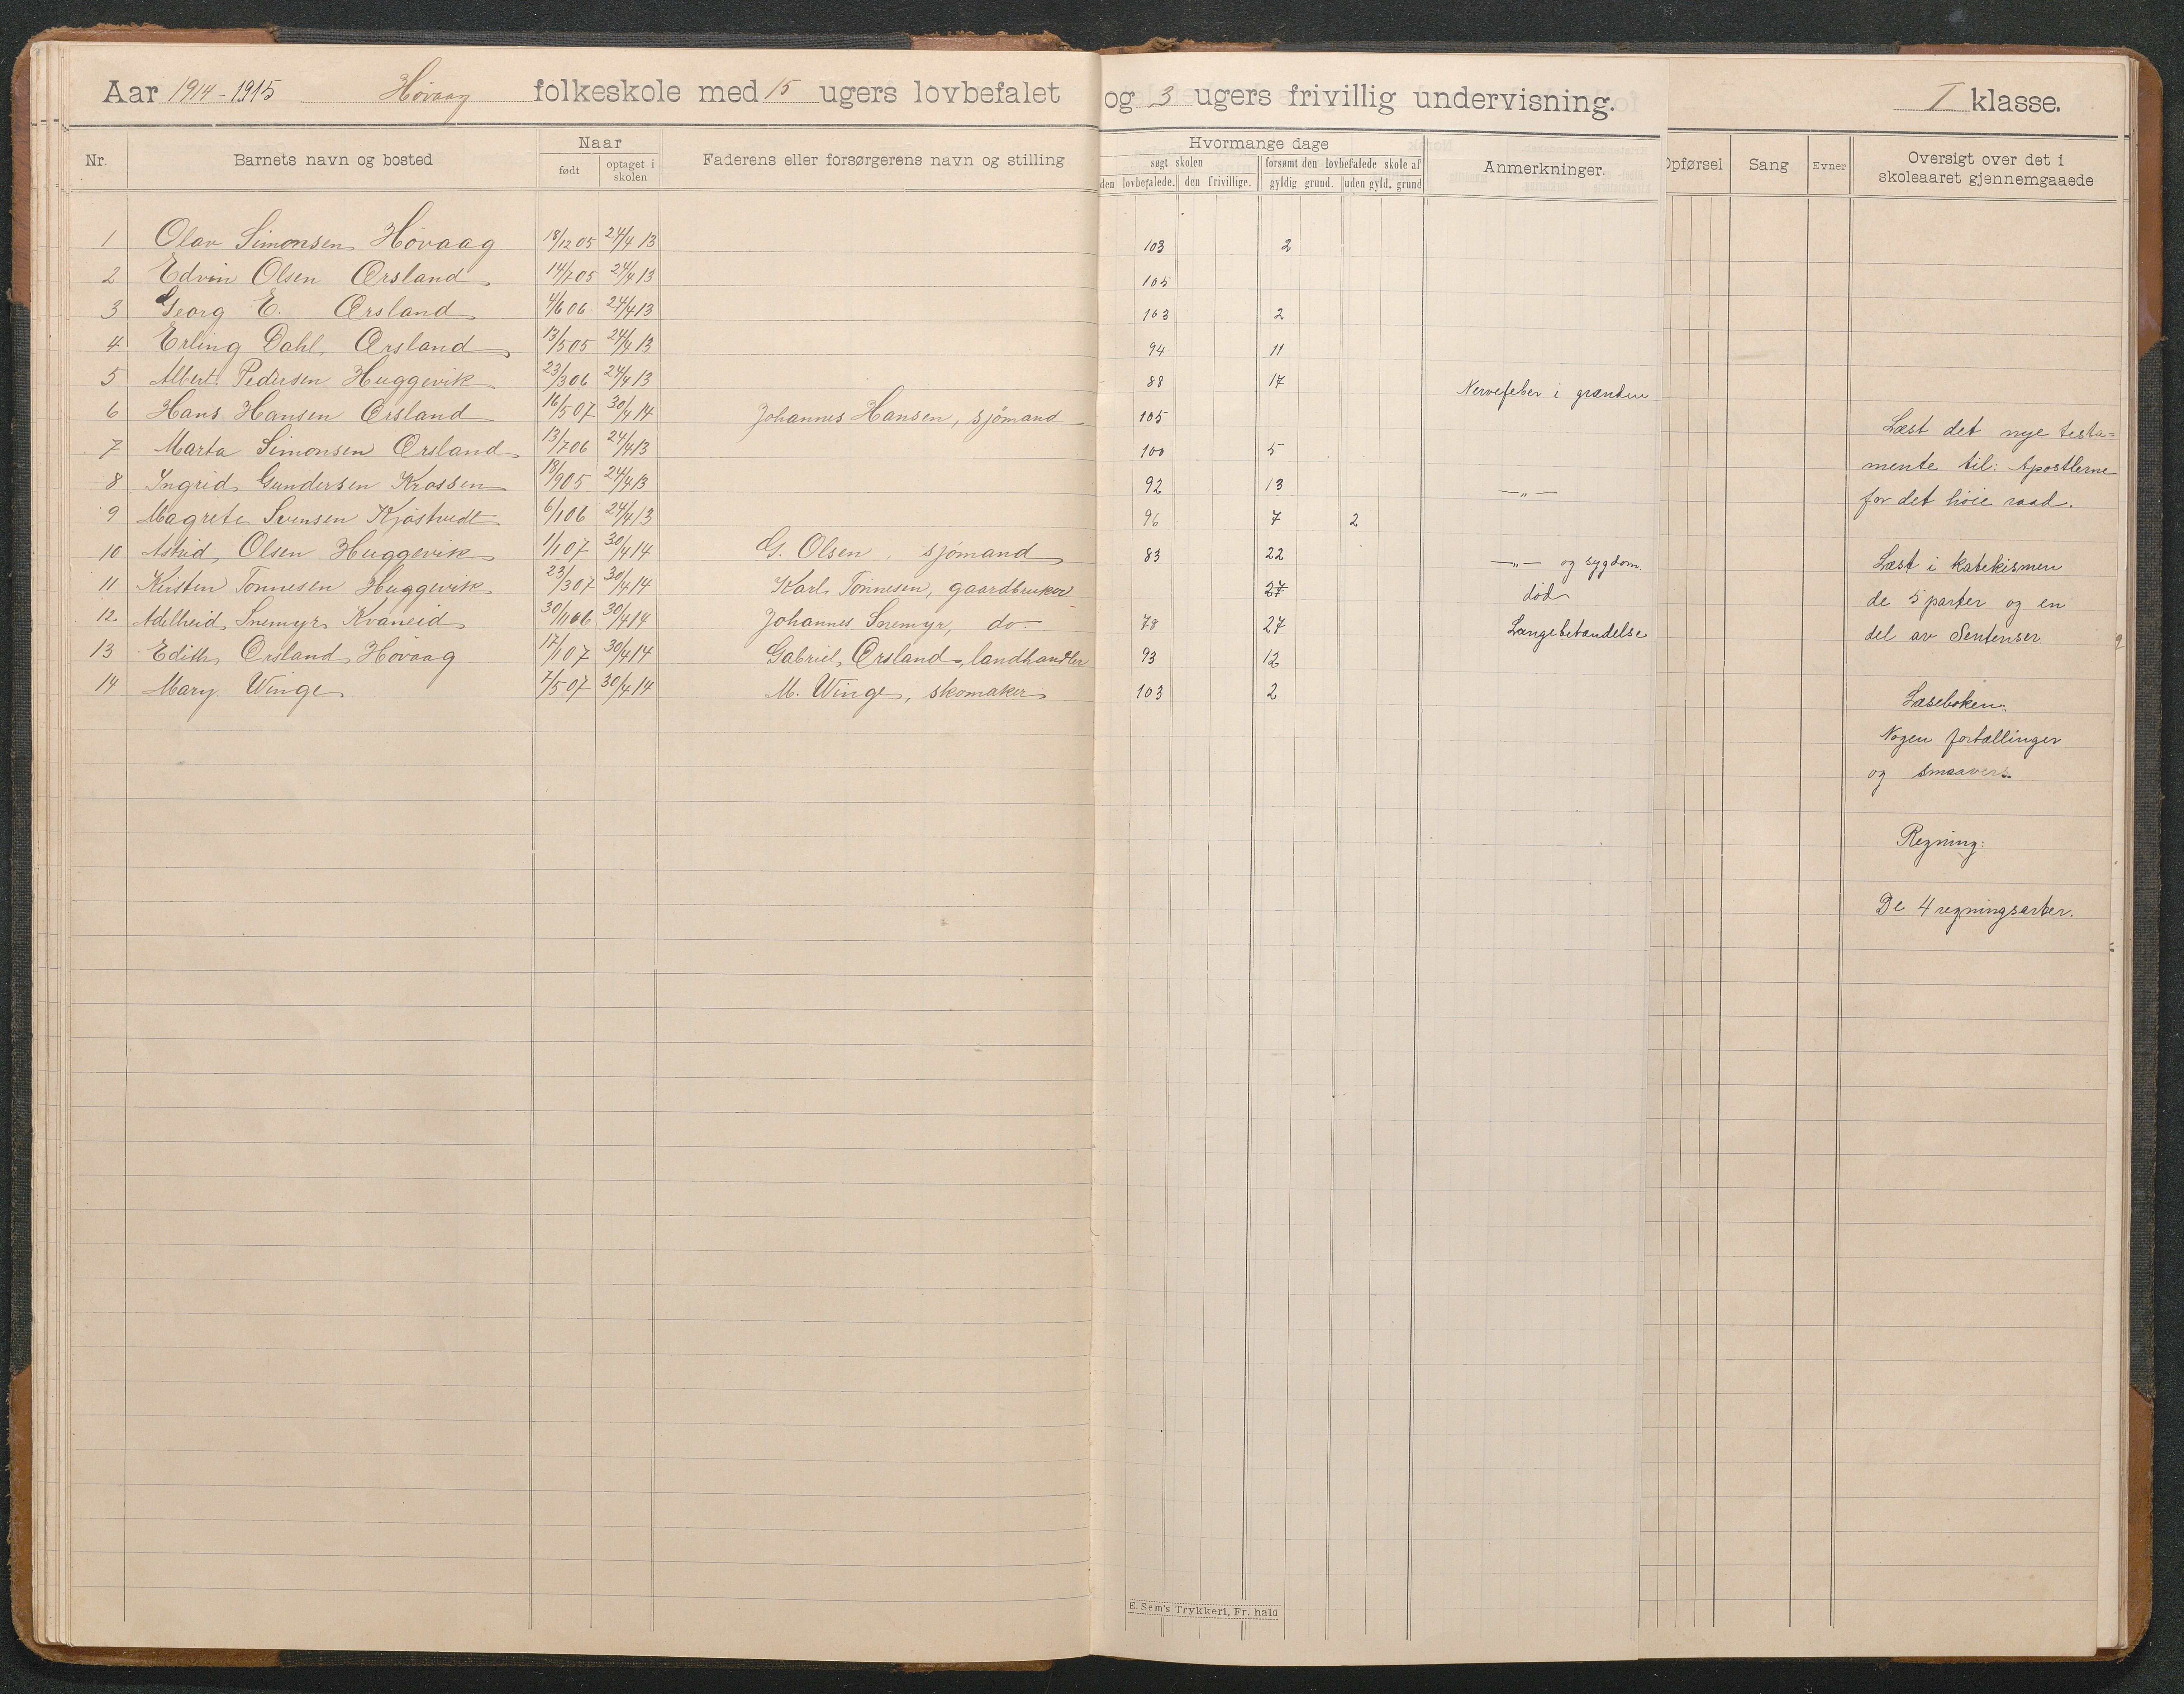 Aar 1914-1915 Høvaag folkeskole med 15 ugers lovbefalet og 3 ugers frivillig undervisning. I klasse.
Nr. Barnets navn og bosted Naar født optaget i skolen Faderens eller forsørgerens navn og stilling Hvormange dage søgt skolen den lovbefalede. den frivillige. forsømt den lovbefalede skole af gyldig grund. uden gyld. grund Anmerkninger. Opførsel Sang Evner Oversigt over det i skoleaaret gjennemgaaede
1 Olav Simonsen Høvaag 18/12 05 24/4 13 103 2
2 Edvin Olsen Ørsland 14/7 05 24/4 13 105
3 Georg E. Ørsland 4/6 06 24/4 13 103 2
4 Erling Dahl Ørsland 13/5 05 24/4 13 94 11
5 Albert Pedersen Huggevik 23/3 06 24/4 13 88 17 Nervefeber i grænden
6 Hans Hansen Ørsland 16/5 07 30/4 14 Johannes Hansen, sjømand 105
7 Marta Simonsen Ørsland 13/7 06 24/4 13 100 5
8 Ingrid Gundersen Krossen 18/9 05 24/4 13 92 13 —„—
9 Magrete Svensen Kjøstvedt 6/1 06 24/4 13 96 7 2
10 Astrid Olsen Huggevik 1/1 07 30/4 14 G. Olsen, sjømand 83 22 —„— og sygdom.
11 Kirsten Tønnesen Huggevik 23/3 07 30/4 14 Karl Tønnesen, gaardbruker 27 død
12 Adelheid Snemyr Kvaneid 30/11 06 30/4 14 Johannes Snemyr, do. 78 27 Lægebehandelse
13 Edith Ørsland Høvaag 17/1 07 30/4 14 Gabriel Ørsland, landhandler 93 12
14 Mary Winge 7/5 07 30/4 14 M. Winge, skomaker 103 2
Læst det nye testa=
mente til: Apostlerne
for det høie raad.
Læst i katekismen
de 5 parter og en
del av Sentenser
Læseboken:
Nogen fortællinger
og smaavers.
Regning:
De 4 regningsarter.
E. Sem's Trykkeri, Fr. hald